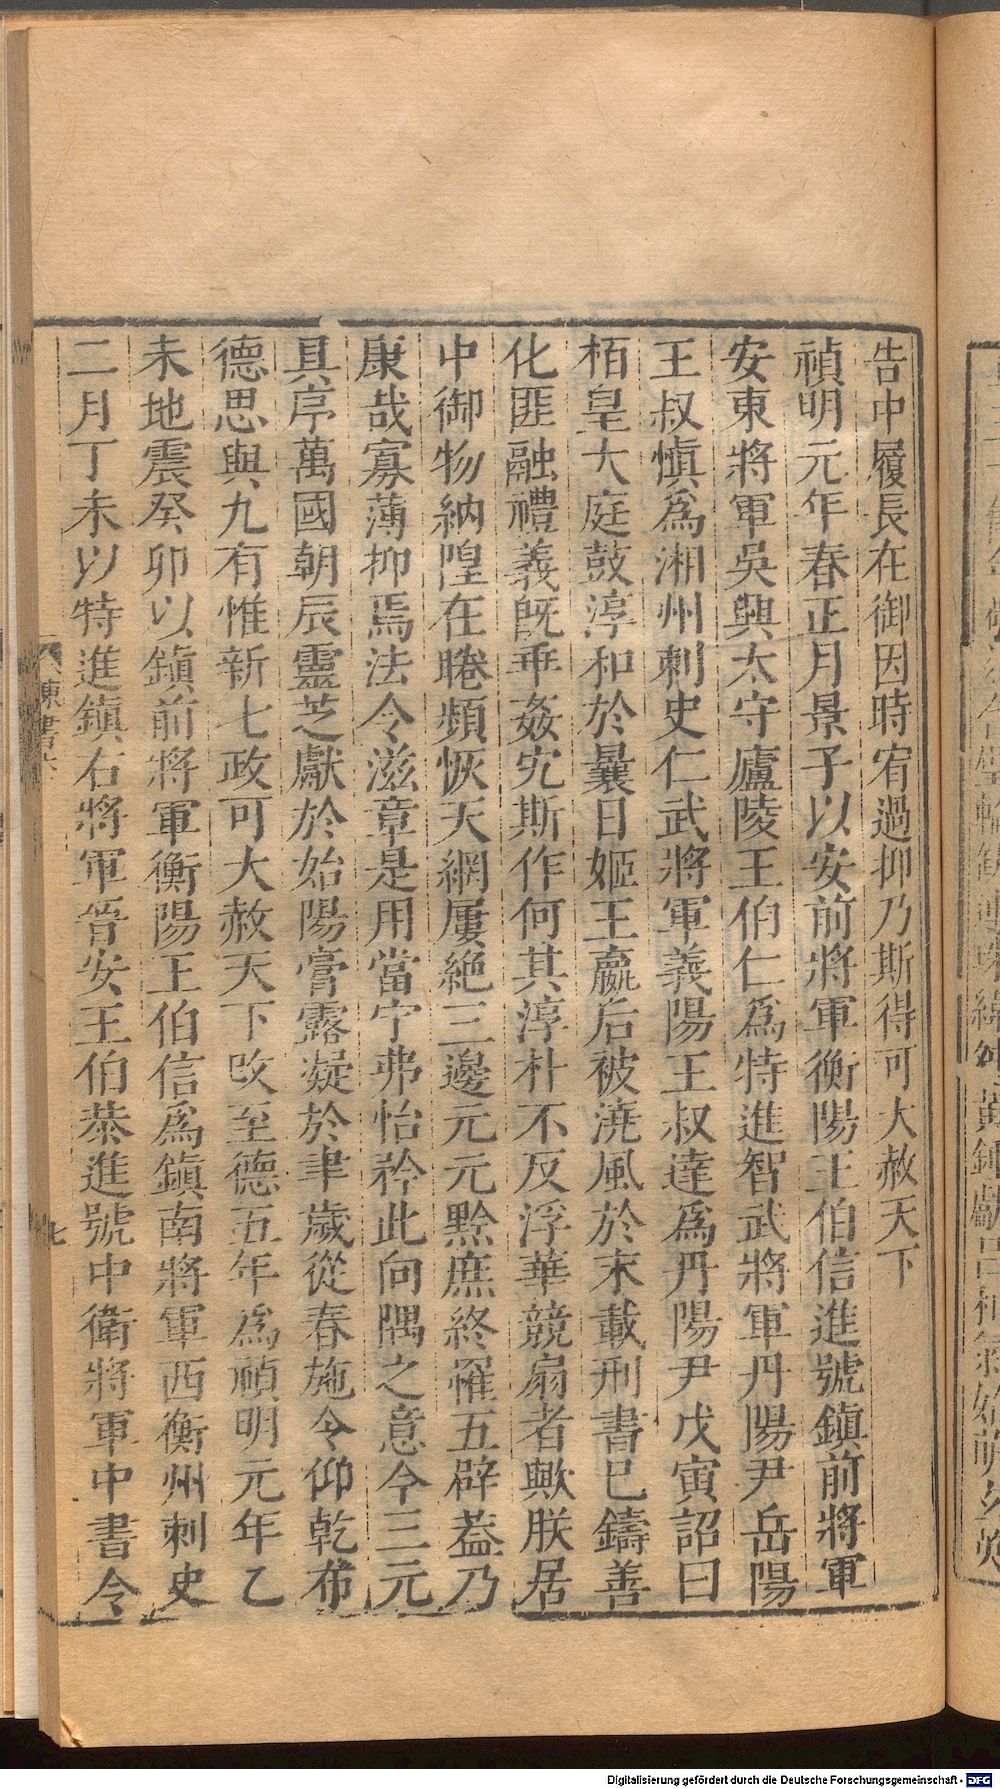 告中履長在御因時宥過抑乃斯得可大赦天下
禎明元年春正月景子以安前將軍衡陽王伯信進號鎮前將軍
安東將軍吳興太守廬陵王伯仁爲特進智武將軍丹陽尹岳陽
王叔慎爲湘州刺史仁武將軍義陽王叔達爲丹陽尹戊寅詔曰
栢皇大庭鼓淳和於曩日姬王嬴后被澆風於末載刑書已鑄善
化匪融禮義既乖姦宄斯作何其淳朴不反浮華競扇者歟朕居
中御物納隍在睠頻恢天網屢絶三邊元元黔庶終罹五辟蓋乃
康哉寡薄抑焉法令滋章是用當宁弗怡矜此向隅之意今三元
具序萬國朝辰靈芝獻於始陽膏露凝於聿歲從春施令仰乾布
德思與九有惟新七政可大赦天下改至德五年爲禎明元年乙
未地震癸卯以鎮前將軍衡陽王伯信爲鎮南將軍西衡州刺史
二月丁未以特進鎮右將軍晉安王伯恭進號中衛將軍中書令
陳書六
七
Digitalisierung gefördert durch die Deutsche Forschungsgemeinschaft - DFG